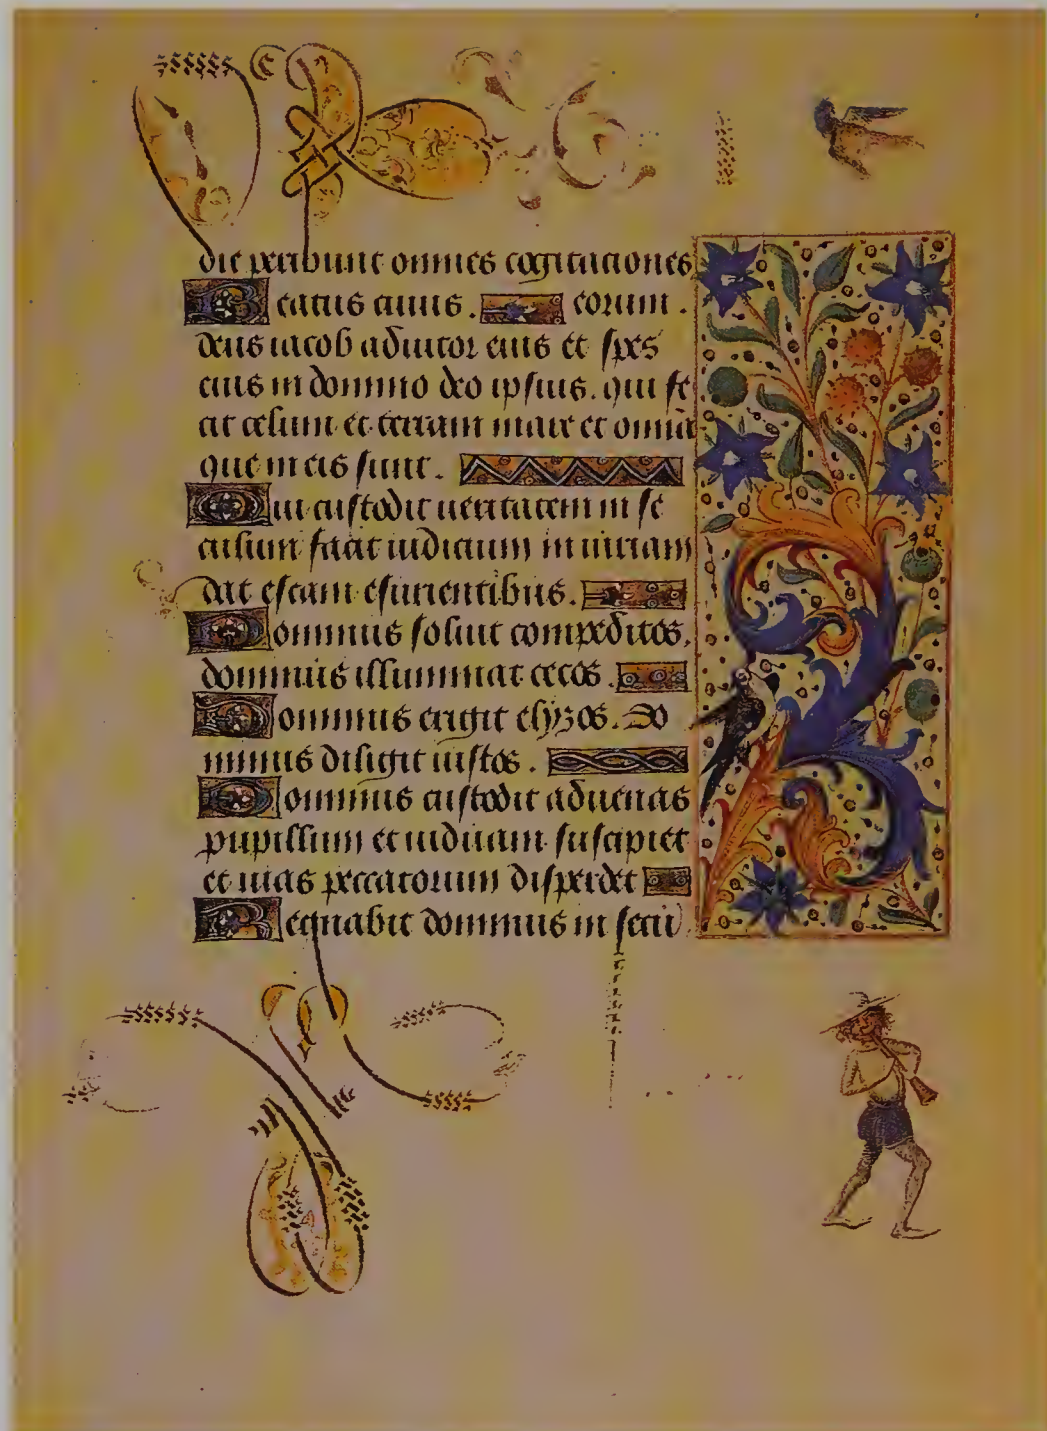 die peribunt omnes cogitaciones
Beatus cuius . eorum .
deus iacob adiutor eius et spes
eius in domino deo ipsius. qui fe
cit celum et terram mare et omnia
que in eis sunt .
Qui custodit ueritatem in se
culum facit iudicium in iuriam
dat escam esurientibus .
Dominus soluit compeditos.
dominus illuminat cecos .
Dominus erigit elyzos . Do
minus diligit iustos .
Dominus custodit aduenas
pupillum et uiduam suscipiet
et uias peccatorum disperdet
Regnabit dominus in secu